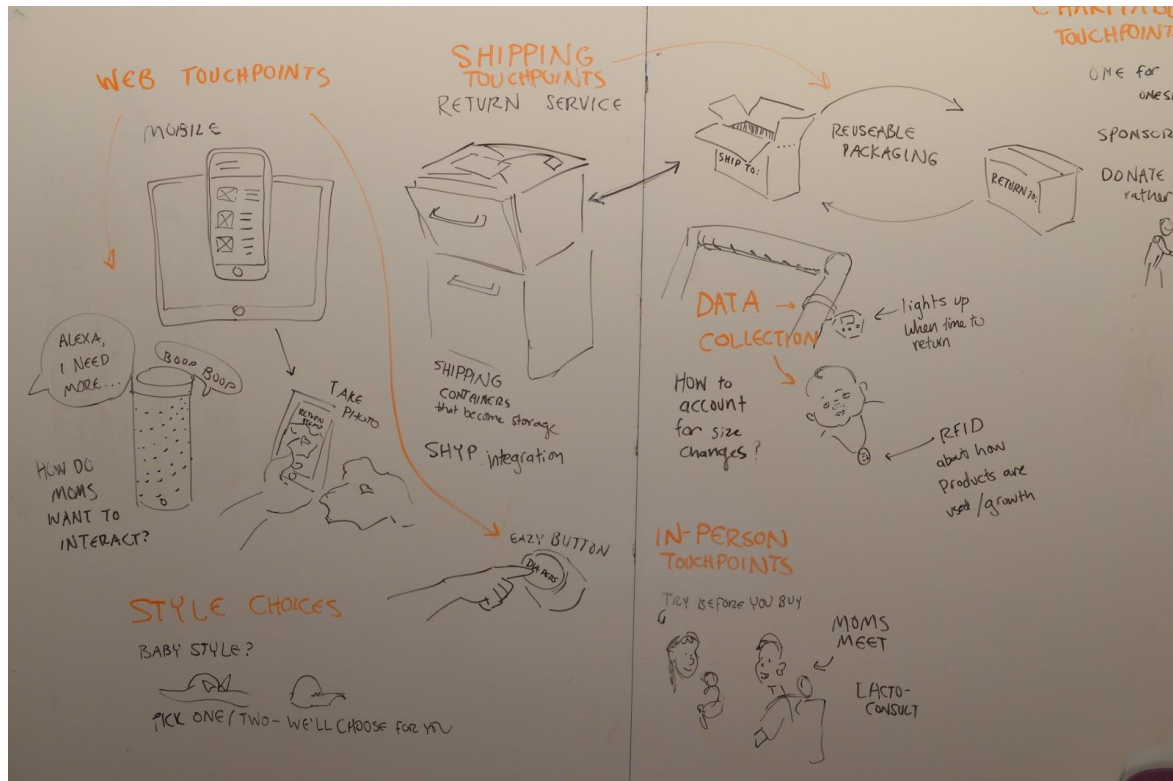 WEB TOUCHPOINTS
MOBILE
ALEXA,
I NEED
MORE...
BOOP BOOP
HOW DO
MOMS
WANT TO
INTERACT?
TAKE
PHOTO
RETURN
ITEMS
STYLE CHOICES
BABY STYLE?
PICK ONE/TWO- WE'LL CHOOSE FOR YOU
SHIPPING
TOUCHPOINTS
RETURN SERVICE
SHIPPING
CONTAINERS
that become storage
SHYP. integration
EAZY BUTTON
DIAPERS
SHIP TO:
REUSEABLE
PACKAGING
RETURN TO:
DATA
COLLECTION
lights up
when time to
return
HOW to
account
for size
changes?
RFID
about how
products are
used/growth
IN-PERSON
TOUCHPOINTS
TRY BEFORE YOU BUY
MOMS
MEET
LACTO-
CONSULT
TOUCHPOINT
ONE for
DONATE
rather